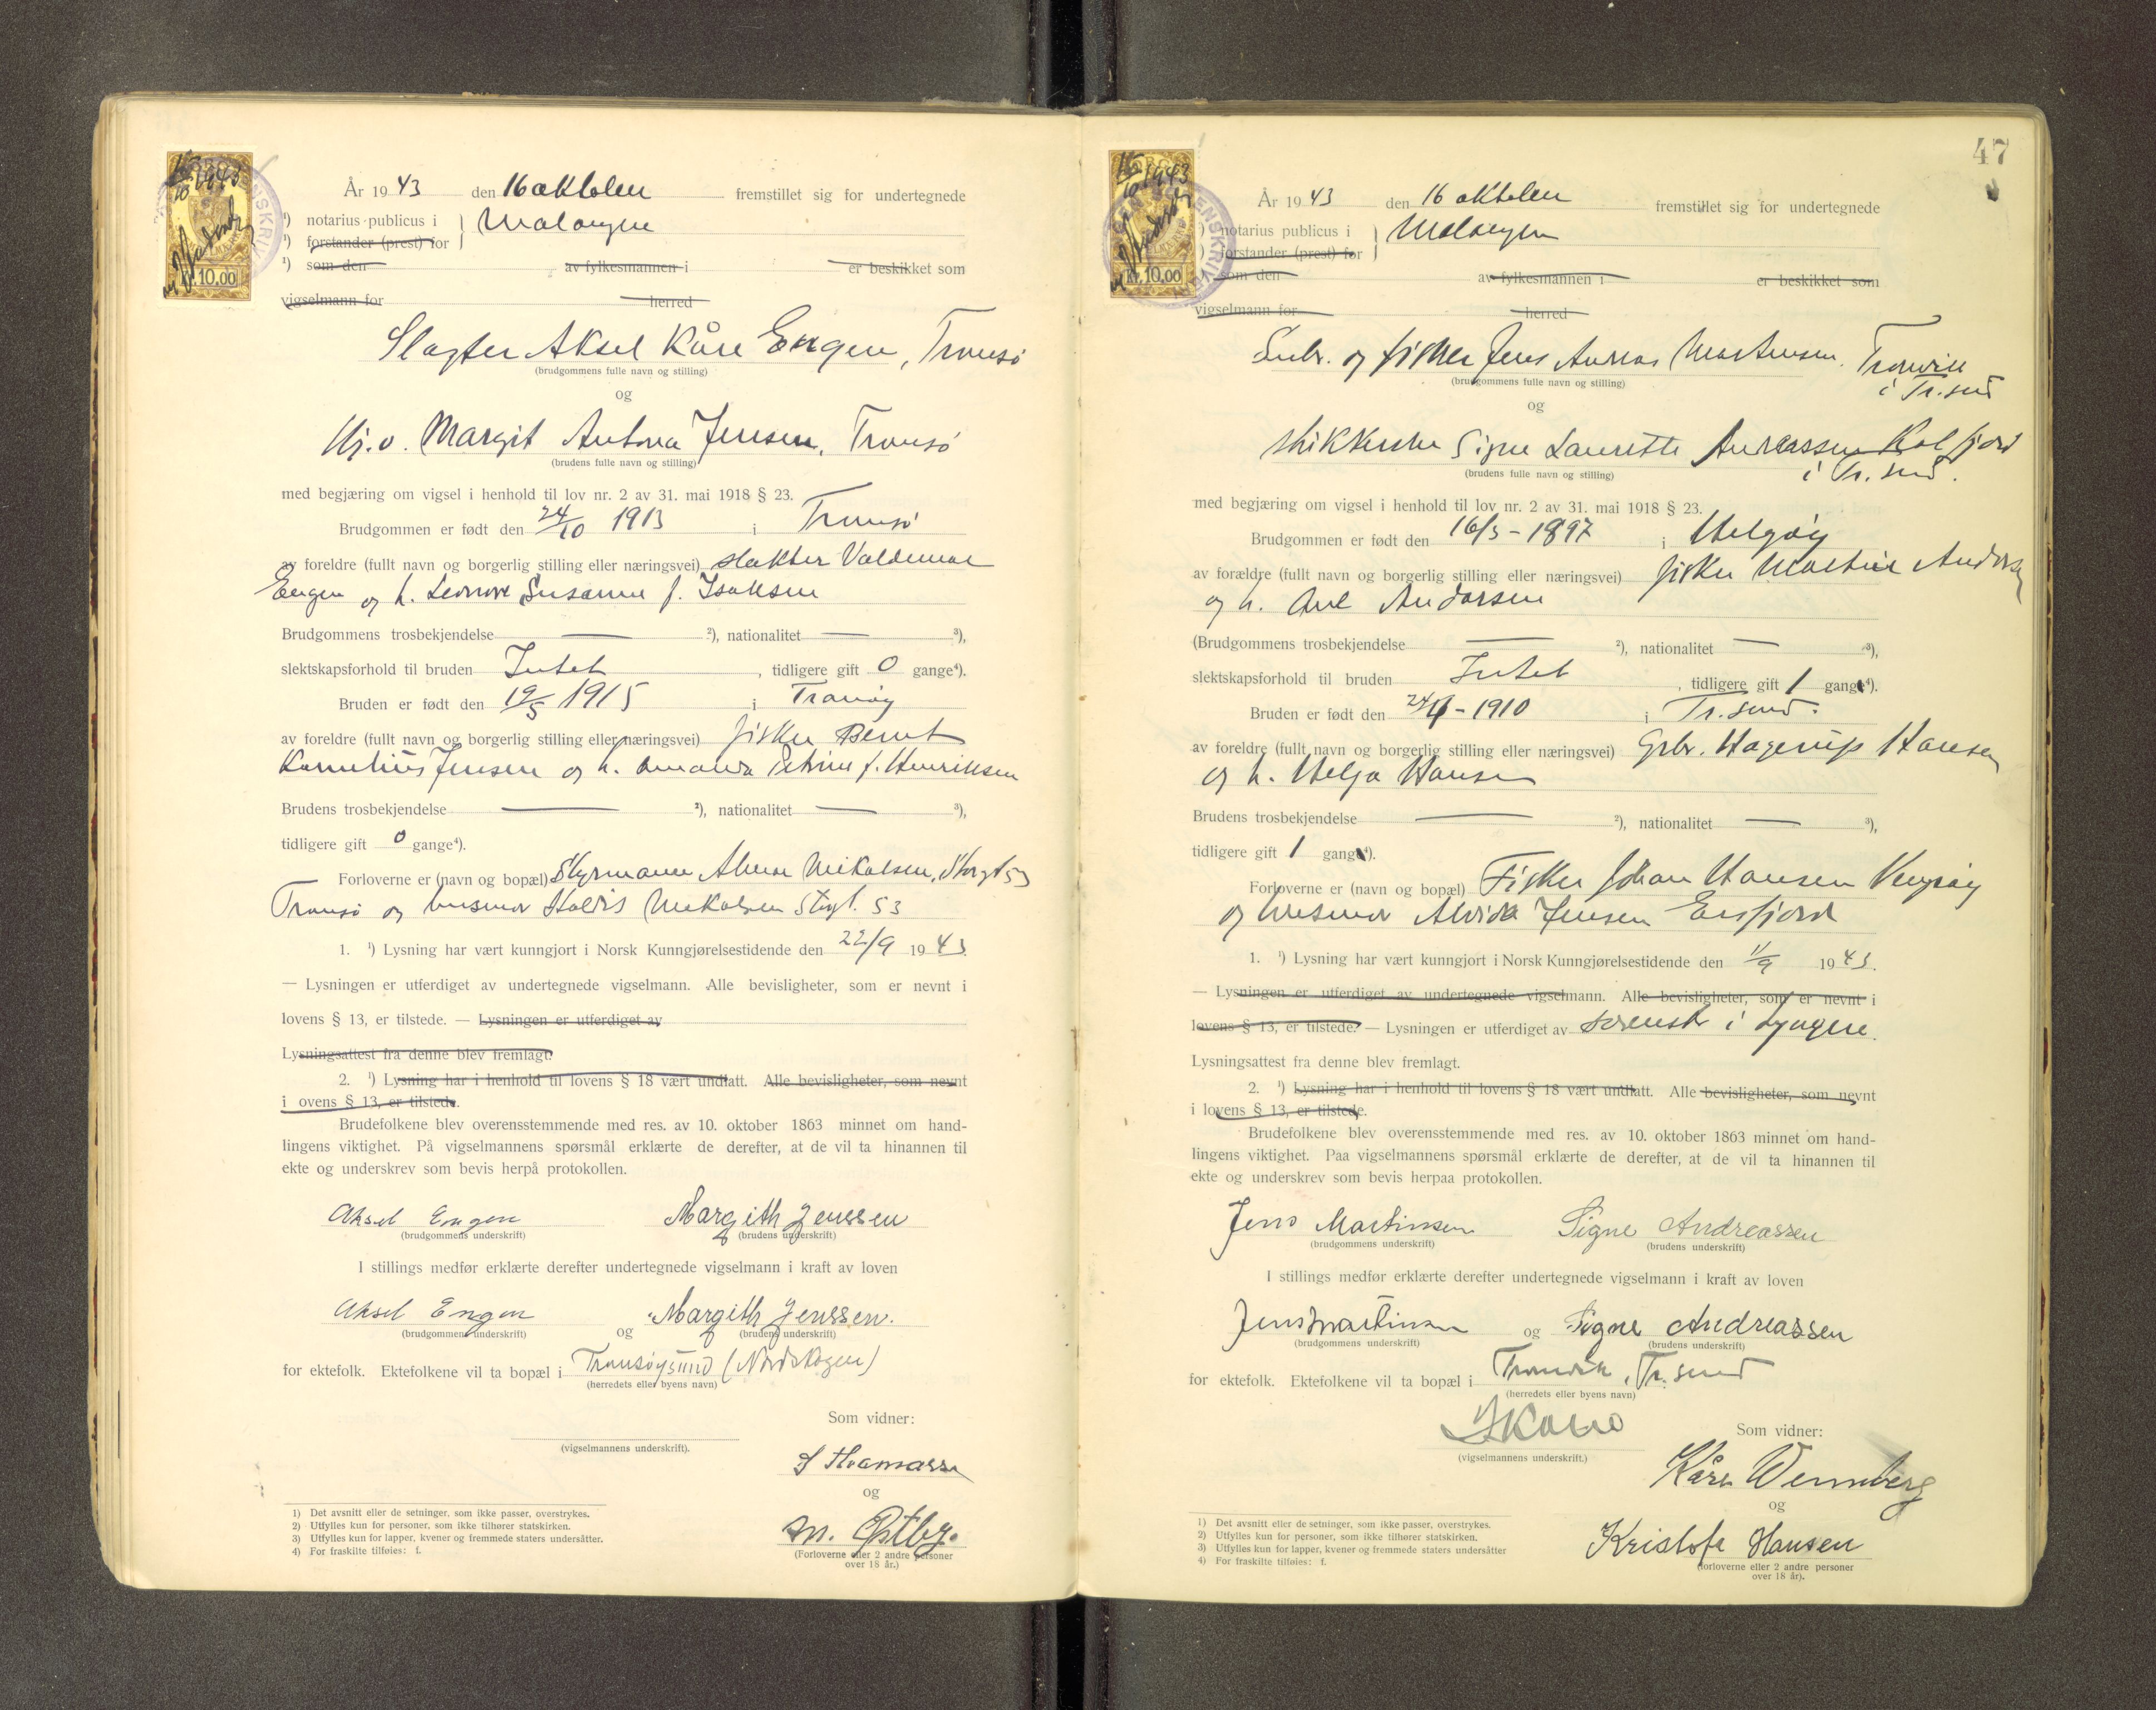 År 1943 den 16 oktober fremstillet sig for undertegnede
¹) notarius publicus i Malangen
¹) forstander (prest) for
¹) som den av fylkesmannen i er beskikket som
vigselmann for herred
Kr. 10.00
Slagter Aksel Kåre Engen, Tromsø
(brudgommens fulle navn og stilling)
og
Margit Antona Jensen, Tromsø
(brudens fulle navn og stilling)
med begjæring om vigsel i henhold til lov nr. 2 av 31. mai 1918 § 23.
Brudgommen er født den 24/10 1913 i Tromsø
av foreldre (fullt navn og borgerlig stilling eller næringsvei) slakter Valdemar
Engen og h. Leonore Susanne f. Isaksen
Brudgommens trosbekjendelse — ²), nationalitet — ³),
slektskapsforhold til bruden Intet, tidligere gift 0 gange⁴).
Bruden er født den 19/5 1915 i Tranøy
av foreldre (fullt navn og borgerlig stilling eller næringsvei) fisker Bernt
Kornelius Jensen og h. Amanda Petrine f. Henriksen
Brudens trosbekjendelse — ²), nationalitet — ³),
tidligere gift 0 gange⁴).
Forloverne er (navn og bopæl) Styrmann Nikolsen, Storgt 53
Tromsø og husmor Haldis Nikolsen Stogt. 53
1. ¹) Lysning har vært kunngjort i Norsk Kunngjørelsestidende den 22/9 1943.
— Lysningen er utferdiget av undertegnede vigselmann. Alle bevisligheter, som er nevnt i
lovens § 13, er tilstede. — Lysningen er utferdiget av
Lysningsattest fra denne blev fremlagt.
2. ¹) Lysning har i henhold til lovens § 18 vært undlatt. Alle bevisligheter, som nevnt
i ovens § 13, er tilstede.
Brudefolkene blev overensstemmende med res. av 10. oktober 1863 minnet om hand-
lingens viktighet. På vigselmannens spørsmål erklærte de derefter, at de vil ta hinannen til
ekte og underskrev som bevis herpå protokollen.
Aksel Engen Margith Jenssen
(brudgommens underskrift) (brudens underskrift)
I stillings medfør erklærte derefter undertegnede vigselmann i kraft av loven
Aksel Engen og Margith Jenssen.
(brudgommens underskrift) (brudens underskrift)
for ektefolk. Ektefolkene vil ta bopæl i Tromsøysund (Nordskogen)
(herredets eller byens navn)
Som vidner:
(vigselmannens underskrift).
og
M. Østby.
(Forloverne eller 2 andre personer
over 18 år.)
1) Det avsnitt eller de setninger, som ikke passer, overstrykes.
2) Utfylles kun for personer, som ikke tilhører statskirken.
3) Utfylles kun for lapper, kvener og fremmede staters undersåtter.
4) For fraskilte tilføies: f.
47
År 1943 den 16 oktober fremstillet sig for undertegnede
¹) notarius publicus i Malangen
¹) forstander (prest) for
som den av fylkesmannen i er beskikket som
vigselmann for herred
Kr. 10.00
og fisker Jens Andreas Martinsen. Tromvik
i Tr.sund
(brudgommens fulle navn og stilling)
og
Signe Laurette Andreassen Kalfjord
i Tr. sund.
(brudens fulle navn og stilling)
med begjæring om vigsel i henhold til lov nr. 2 av 31. mai 1918 § 23.
Brudgommen er født den 16/3 - 1897 i Helgøy
av forældre (fullt navn og borgerlig stilling eller næringsvei) fisker Martin Andersen
og h. Ane Andersen
(Brudgommens trosbekjendelse — ²), nationalitet — ³),
slektskapsforhold til bruden Intet, tidligere gift 1 gang⁴).
Bruden er født den - 1910 i Tr. sund.
av foreldre (fullt navn og borgerlig stilling eller næringsvei) Gbr. Hagerup Hansen
og h. Helga Hansen
Brudens trosbekjendelse — ²), nationalitet — ³),
tidligere gift 1 gang⁴).
Forloverne er (navn og bopæl) Fisker Johan Hansen Vengsøy
og husmor Alvida Jensen Ersfjord
1. ¹) Lysning har vært kunngjort i Norsk Kunngjørelsestidende den 11/9 1943.
— Lysningen er utferdiget av undertegnede vigselmann. Alle bevisligheter, som er nevnt i
lovens § 13, er tilstede. — Lysningen er utferdiget av sorenskr i Lyngen.
Lysningsattest fra denne blev fremlagt.
2. ¹) Lysning har i henhold til lovens § 18 vært undlatt. Alle bevisligheter, som nevnt
i lovens § 13, er tilstede.
Brudefolkene blev overensstemmende med res. av 10. oktober 1863 minnet om hand-
lingens viktighet. Paa vigselmannens spørsmål erklærte de derefter, at de vil ta hinannen til
ekte og underskrev som bevis herpaa protokollen.
Jens Martinsen Signe Andreassen
(brudgommens underskrift) (brudens underskrift)
I stillings medfør erklærte derefter undertegnede vigselmann i kraft av loven
Jens Martinsen og Signe Andreassen
(brudgommens underskrift) (brudens underskrift)
for ektefolk. Ektefolkene vil ta bopæl i Tromvik, Tr. sund
(herredets eller byens navn)
Som vidner:
(vigselmannens underskrift.)
Kåre Wennberg
og
Kristofa Hansen
(forloverne eller 2 andre personer
over 18 år).
1) Det avsnitt eller de setninger, som ikke passer, overstrykes.
2) Utfylles kun for personer, som ikke tilhører statskirken.
3) Utfylles kun for lapper, kvener og fremmede staters undersåtter
4) For fraskilte tilføies: f.